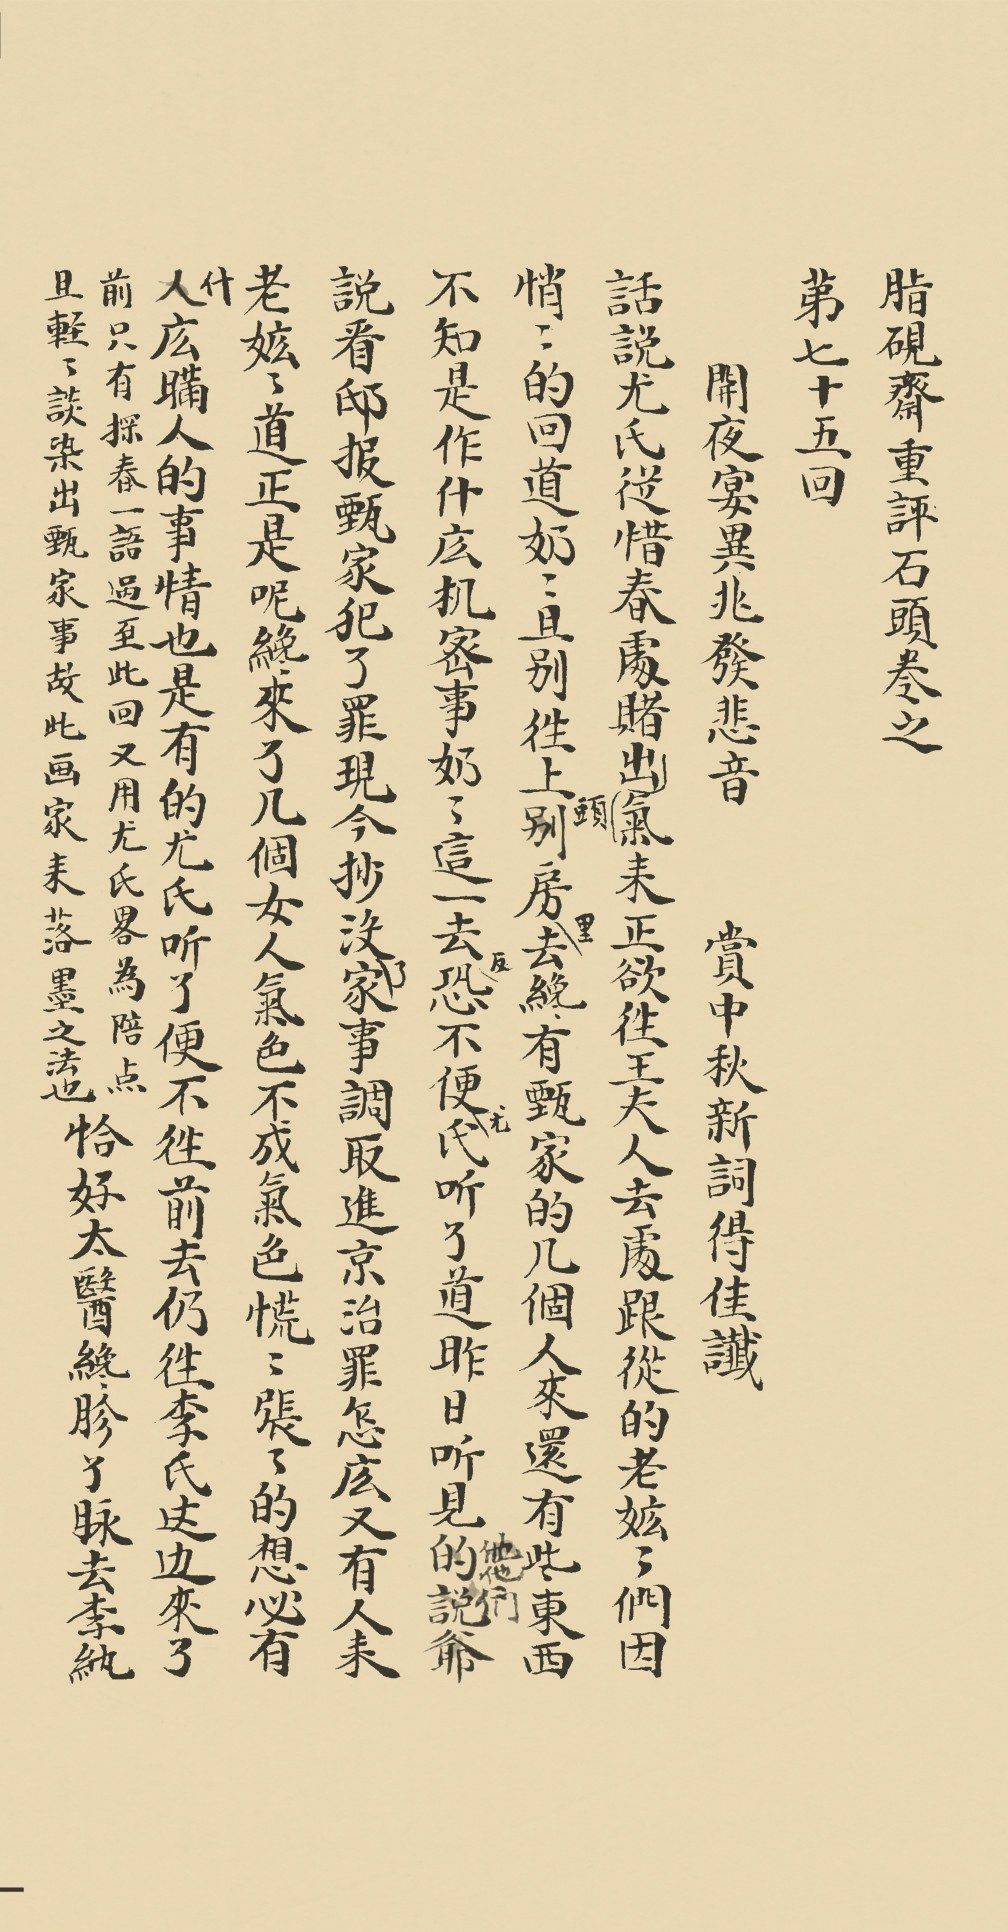 脂硯齋重評石頭卷之
第七十五回
開夜宴異兆發悲音 賞中秋新詞得佳讖
話説尤氏從惜春處賭出氣来正欲徃王夫人去處跟從的老媤〻們因
悄〻的回道奶〻且别徃上别房去纔有甄家的几個人來還有些東西
頭
里
不知是作什庅机宻事奶〻這一去恐不便氏听了道昨日听見的説爺
反
尤
他他們
説看邸报甄家犯了罪現今抄没家事調取進京治罪怎庅又有人来
了
老媤〻道正是呢纔來了几個女人氣色不成氣色慌〻張〻的想必有
什
人庅瞞人的事情也是有的尤氏听了便不徃前去仍徃李氏这边來了
前只有探春一語過至此回又用尤氏畧為陪点
且軽〻談染出甄家事故此画家来落墨之法也
恰好太醫纔胗了脉去李紈